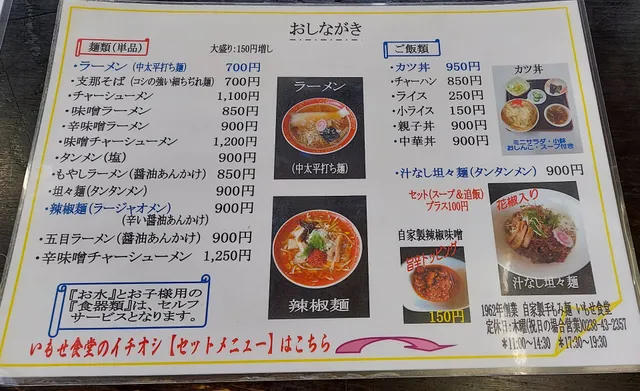 おしながき
麺類(単品)
大盛り:150円増し
・ラーメン (中太平打ち麺) 700円
・支那そば (コシの強い細ちぢれ麺) 700円
・チャーシューメン 1,100円
・味噌ラーメン 850円
・辛味噌ラーメン 900円
・味噌チャーシューメン 1,200円
・タンメン(塩) 900円
・もやしラーメン(醤油あんかけ) 850円
・坦々麺(タンタンメン) 900円
・辣椒麺(ラージャオメン) 900円
(辛い醤油あんかけ)
・五目ラーメン(醤油あんかけ) 900円
・辛味噌チャーシューメン 1,250円
『お水』とお子様用の
『食器類』は、セルフ
サービスとなります。
ラーメン
(中太平打ち麺)
辣椒麺
ご飯類
・カツ丼 950円
・チャーハン 850円
・ライス 250円
・小ライス 150円
・親子丼 900円
・中華丼 900円
カツ丼
ミニサラダ・小鉢
おしんこ・スープ付き
・汁なし坦々麺(タンタンメン) 900円
セット(スープ&追飯)
プラス100円
自家製辣椒味噌
旨辛トッピング
150円
花椒入り
汁なし坦々麺
1962年創業 自家製手もみ麺 いもせ食堂
定休日:木曜(祝日の場合営業)0238-43-2357
*11:00~14:30 *17:30~19:30
いもせ食堂のイチオシ【セットメニュー】はこちら